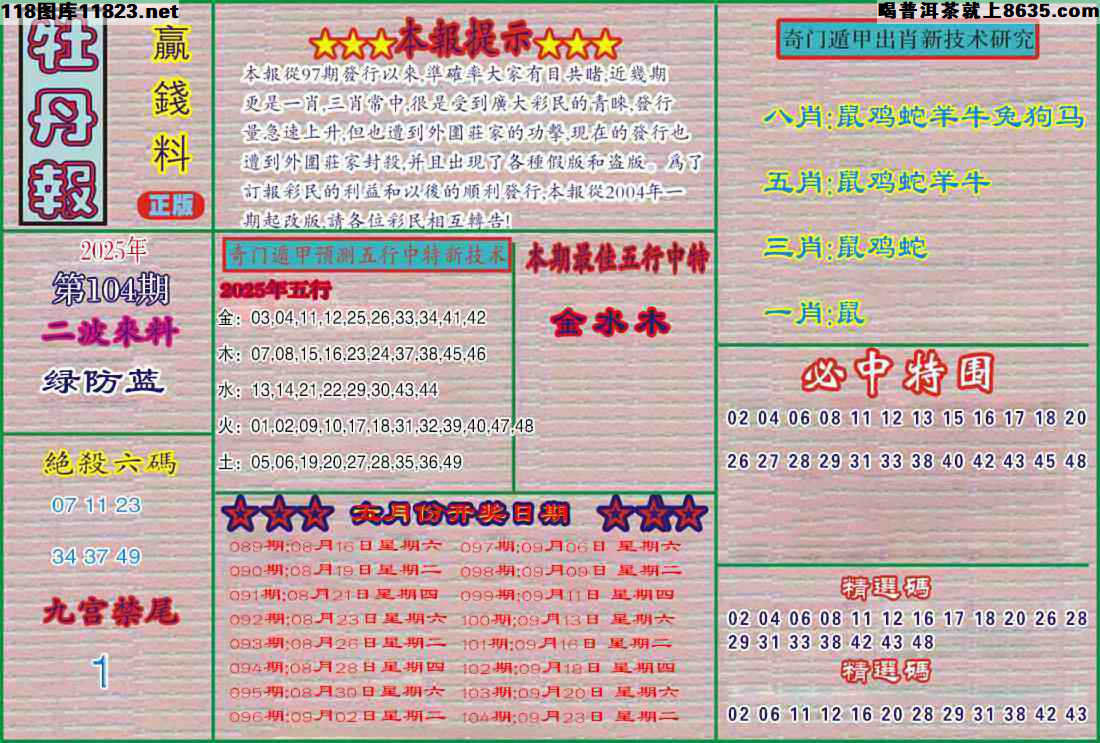 118图库11823.net
喝普洱茶就上8635.com
牡丹報
贏錢料
正版
★★★本報提示★★★
本報從97期發行以來,準確率大家有目共睹,近幾期
更是一肖,三肖常中,很是受到廣大彩民的青睞,發行
量急速上升,但也遭到外圍莊家的功擊,現在的發行也
遭到外圍莊家封殺,并且出現了各種假版和盗版。爲了
訂報彩民的利益和以後的順利發行,本報從2004年一
期起改版,請各位彩民相互轉告!
奇门遁甲出肖新技术研究
八肖:鼠鸡蛇羊牛兔狗马
五肖:鼠鸡蛇羊牛
三肖:鼠鸡蛇
一肖:鼠
2025年
第104期
二波來料
绿防蓝
奇门遁甲预测五行中特新技术
2025年五行
金：03,04,11,12,25,26,33,34,41,42
木：07,08,15,16,23,24,37,38,45,46
水：13,14,21,22,29,30,43,44
火：01,02,09,10,17,18,31,32,39,40,47,48
土：05,06,19,20,27,28,35,36,49
本期最佳五行中特
金水木
必中特围
02 04 06 08 11 12 13 15 16 17 18 20
26 27 28 29 31 33 38 40 42 43 45 48
絶殺六碼
07 11 23
34 37 49
九宫禁尾
1
六月份开奖日期
089期:08月16日星期六 097期:09月06日 星期六
090期:08月19日星期二 098期:09月09日 星期二
091期:08月21日星期四 099期:09月11日 星期四
092期:08月23日星期六 100期:09月13日 星期六
093期:08月26日星期二 101期:09月16日 星期二
094期:08月28日星期四 102期:09月18日 星期四
095期:08月30日星期六 103期:09月20日 星期六
096期:09月02日星期二 104期:09月23日 星期二
精選碼
02 04 06 08 11 12 16 17 18 20 26 28
29 31 33 38 42 43 48
精選碼
02 06 11 12 16 20 28 29 31 38 42 43